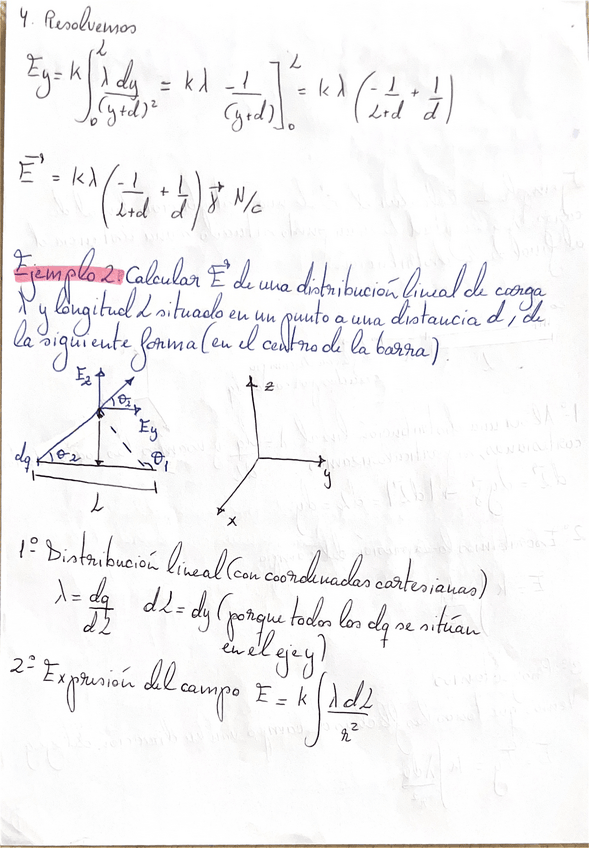 4. Resolvemos
Ey = k ∫₀ᴸ λ dy / (y+d)² = kλ -1/(y+d) ]₀ᴸ = kλ (-1/(L+d) + 1/d)
E⃗ = kλ (-1/(L+d) + 1/d) j⃗ N/C
Ejemplo 2: Calcular E⃗ de una distribución lineal de carga
λ y longitud L situado en un punto a una distancia d, de
la siguiente forma (en el centro de la barra).
Ez
θ2
Ey
dq θ2 θ1
L
z
y
x
1º Distribución lineal (con coordenadas cartesianas)
λ = dq/dL dL = dy (porque todos los dq se sitúan
en el eje y)
2º Expresión del campo E = k ∫ λ dL / r²